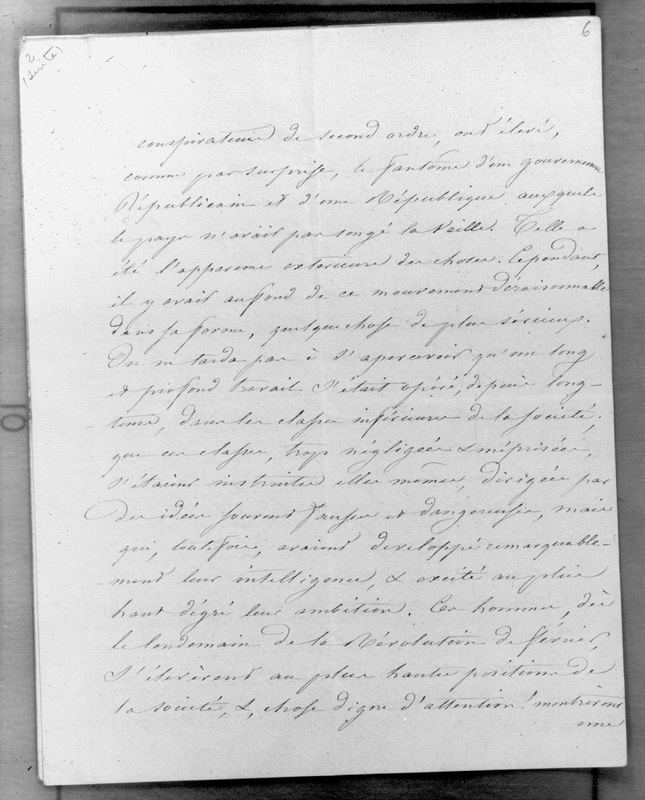 2
(suite)
6
conspirateurs de second ordre, ont élevé,
comme par surprise, le fantôme d'un gouvernement
Républicain et d'une République auxquels
le pays n'avait pas songé la Veille. Telle a
été l'apparence exterieure des choses. Cependant,
il y avait au fond de ce mouvement déraisonnable
dans sa forme, quelque chose de plus sérieux.
On ne tarda pas à s'apercevoir qu'un long
et profond travail s'était opéré, depuis long-
tems, dans les classes inférieures de la société;
que ces classes, trop négligées & méprisées,
s'étaient instruites elles mêmes, dirigées par
des idées souvent fausses et dangereuses, mais
qui, toutefois, avaient developpé remarquable-
-ment leur intelligence, & excité au plus
haut dégré leur ambition. Ces hommes, dès
le lendemain de la Révolution de février,
s'élevèrent aux plus hautes positions de
la société, &, chose digne d'attention! montrèrent
une
10